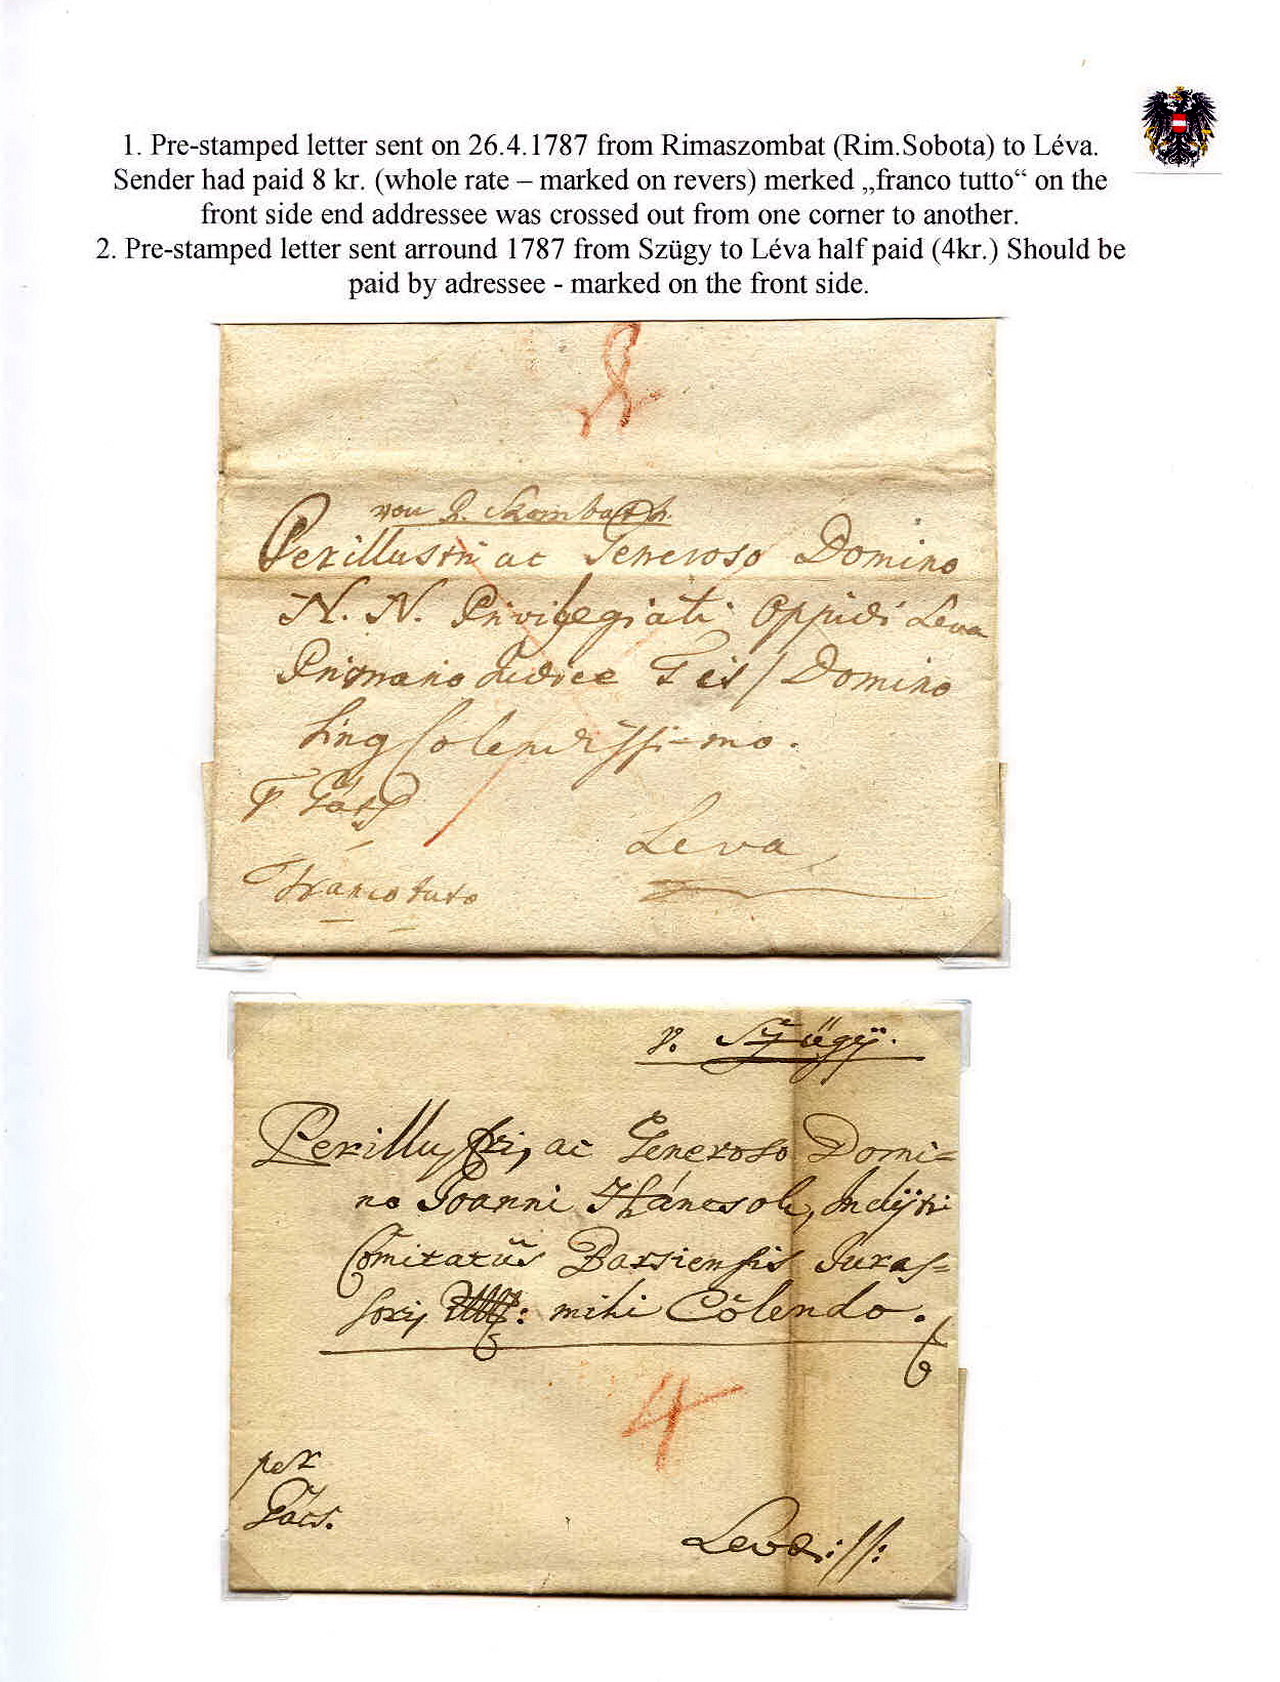 1. Pre-stamped letter sent on 26.4.1787 from Rimaszombat (Rim.Sobota) to Léva.
Sender had paid 8 kr. (whole rate – marked on revers) merked „franco tutto“ on the
front side end addressee was crossed out from one corner to another.
2. Pre-stamped letter sent arround 1787 from Szügy to Léva half paid (4kr.) Should be
paid by adressee - marked on the front side.
8
von R. Szombath
Perillustri ac Generoso Domino
N. N. Privilegiati Oppidi Leva
Primario Judice Domino
Colendissimo.
Leva
Franco tuto
v. Szügÿ.
Perillustri, ac Generoso Domi=
no Joanni Jncljti
Comitatûs Barsiensis Juras=
sori, mihi Colendo.
4
per
Gács.
Levae.